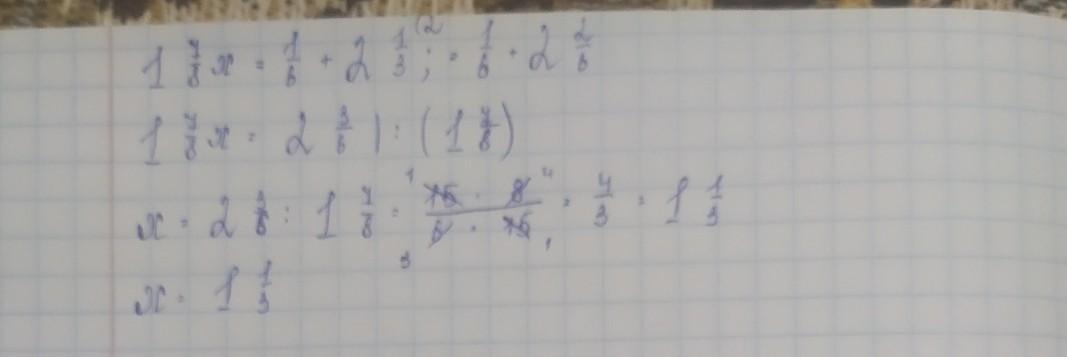 1 7/8 x = 1/6 + 2 1/3 (2 ; = 1/6 + 2 2/6
1 7/8 x = 2 3/6 | : (1 7/8)
x = 2 3/6 : 1 7/8 = 15 · 8 / 6 · 15 = 4/3 = 1 1/3
x = 1 1/3